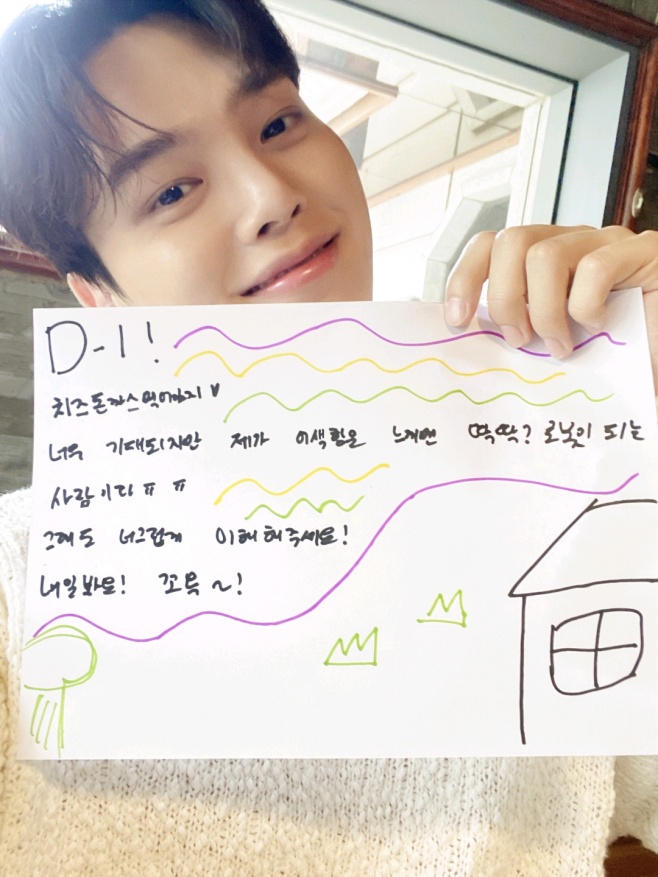 D-1!
치즈돈까스 먹어까지 ♥
너무 기대되지만 제가 어색함을 느끼면 딱딱? 로봇이 되는
사람이다 ㅠ ㅠ
그래도 너그럽게 이해해주세요!
내일봐요! 꼬옥 ~!